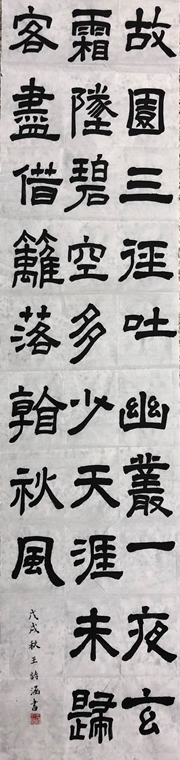 故園三徑吐幽叢一夜玄
霜墜碧空多少天涯未歸
客盡借籬落看秋風
戊戌秋王詩涵書